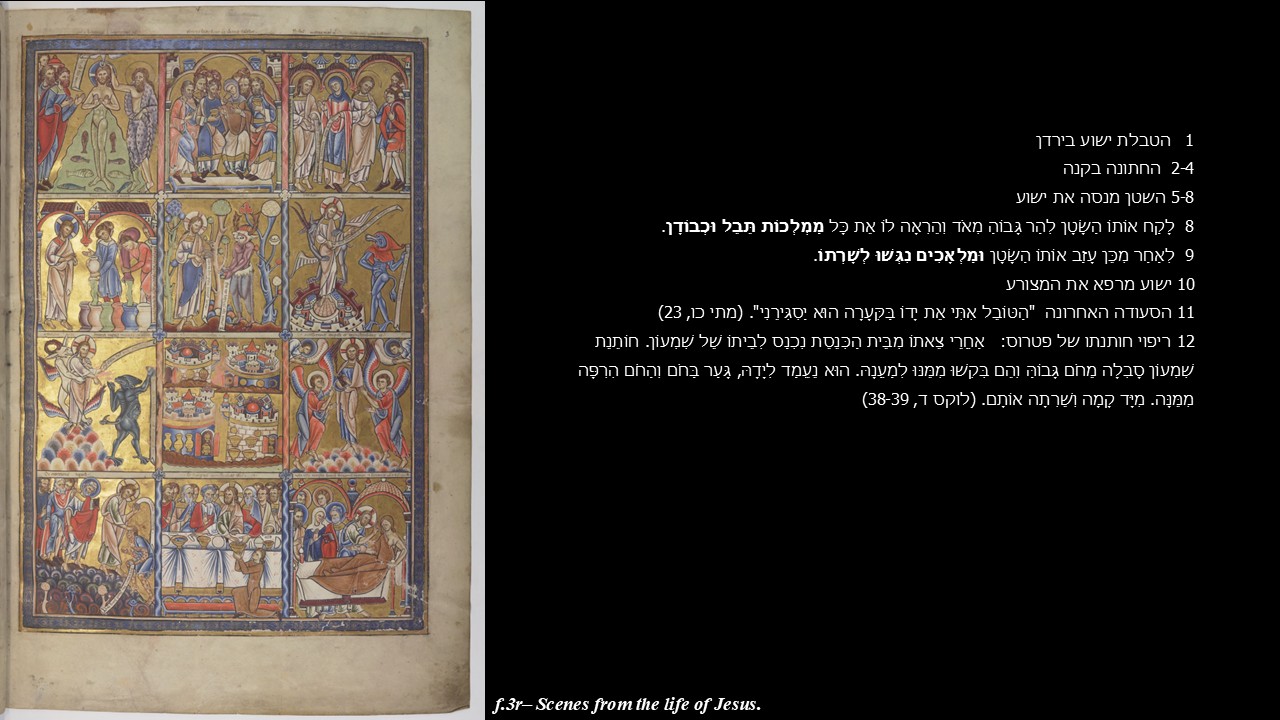 1 הטבלת ישוע בירדן
2-4 החתונה בקנה
5-8 השטן מנסה את ישוע
8 לָקַח אוֹתוֹ הַשָּׂטָן לְהַר גָּבוֹהַּ מְאֹד וְהֶרְאָה לוֹ אֶת כָּל מַמְלְכוֹת תֵּבֵל וּכְבוֹדָן.
9 לְאַחַר מִכֵּן עָזַב אוֹתוֹ הַשָּׂטָן וּמַלְאָכִים נִגְּשׁוּ לְשָׁרְתוֹ.
10 ישוע מרפא את המצורע
11 הסעודה האחרונה "הַטּוֹבֵל אִתִּי אֶת יָדוֹ בַּקְּעָרָה הוּא יַסְגִּירֵנִי". (מתי כו, 23)
12 ריפוי חותנתו של פטרוס: אַחֲרֵי צֵאתוֹ מִבֵּית הַכְּנֶסֶת נִכְנַס לְבֵיתוֹ שֶׁל שִׁמְעוֹן. חוֹתֶנֶת
שִׁמְעוֹן סָבְלָה מֵחֹם גָּבוֹהַּ וְהֵם בִּקְשׁוּ מִמֶּנּוּ לְמַעֲנָהּ. הוּא נֶעֱמַד לְיָדָהּ, גָּעַר בַּחֹם וְהַחֹם הִרְפָּה
מִמֶּנָּה. מִיָּד קָמָה וְשֵׁרְתָה אוֹתָם. (לוקס ד, 38-39)
f.3r– Scenes from the life of Jesus.